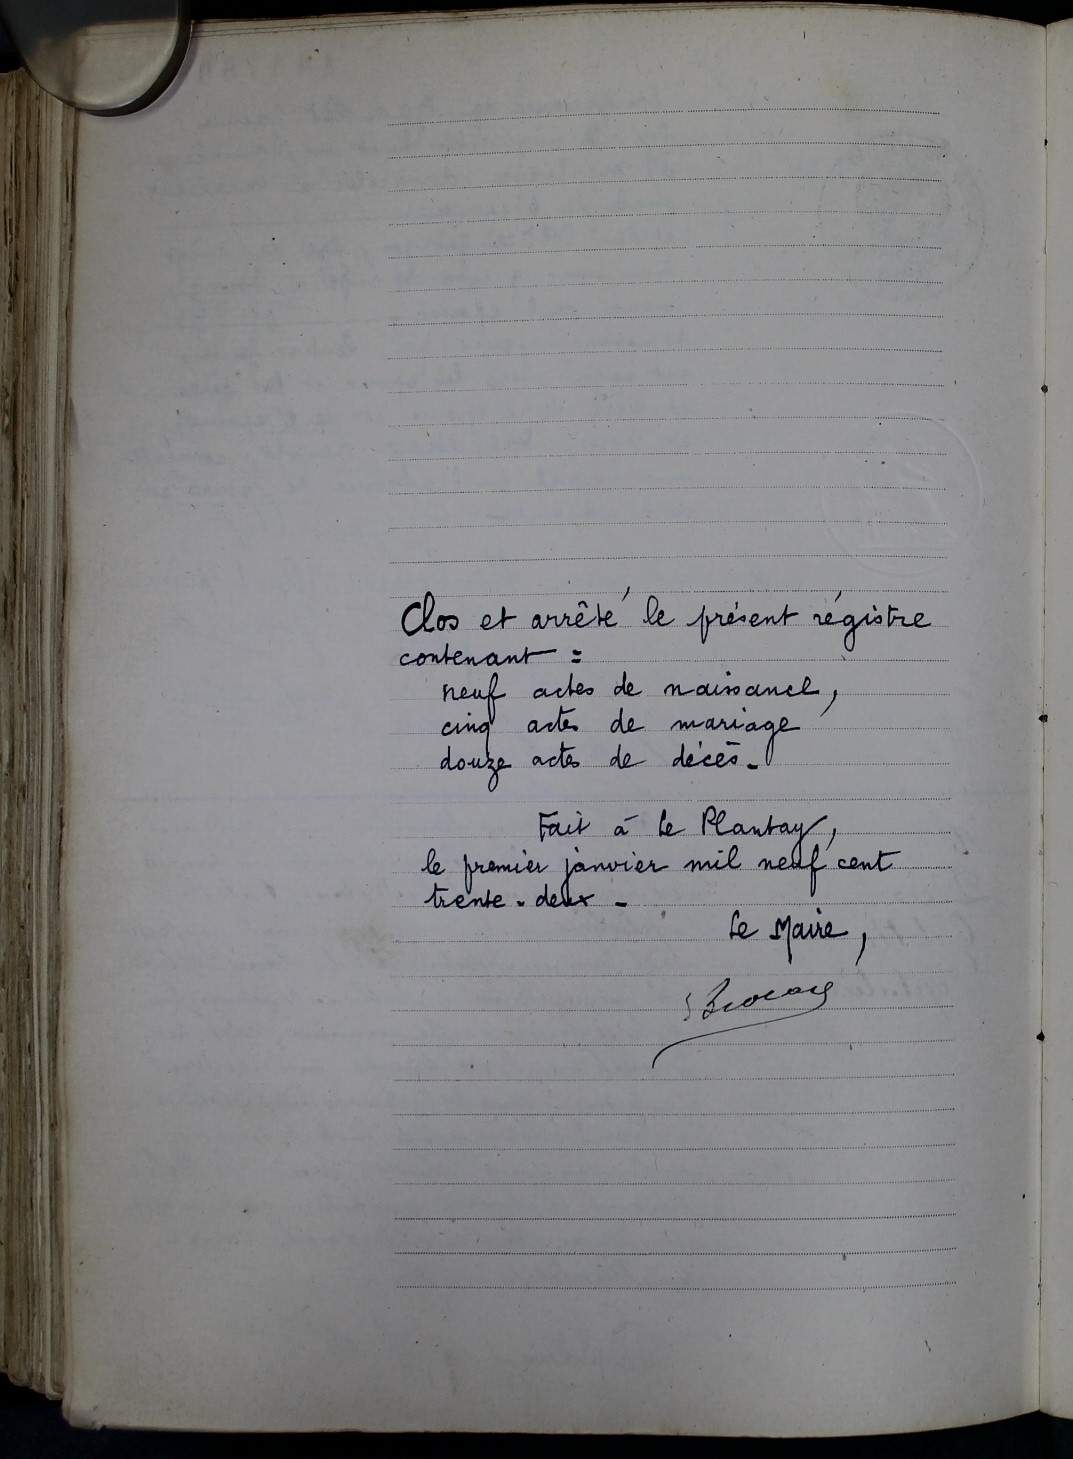 Clos et arrêté le présent régistre
contenant =
neuf actes de naissance,
cinq actes de mariage
douze actes de décès.
Fait à Le Plantay,
le premier janvier mil neuf cent
trente-deux -
Le Maire,